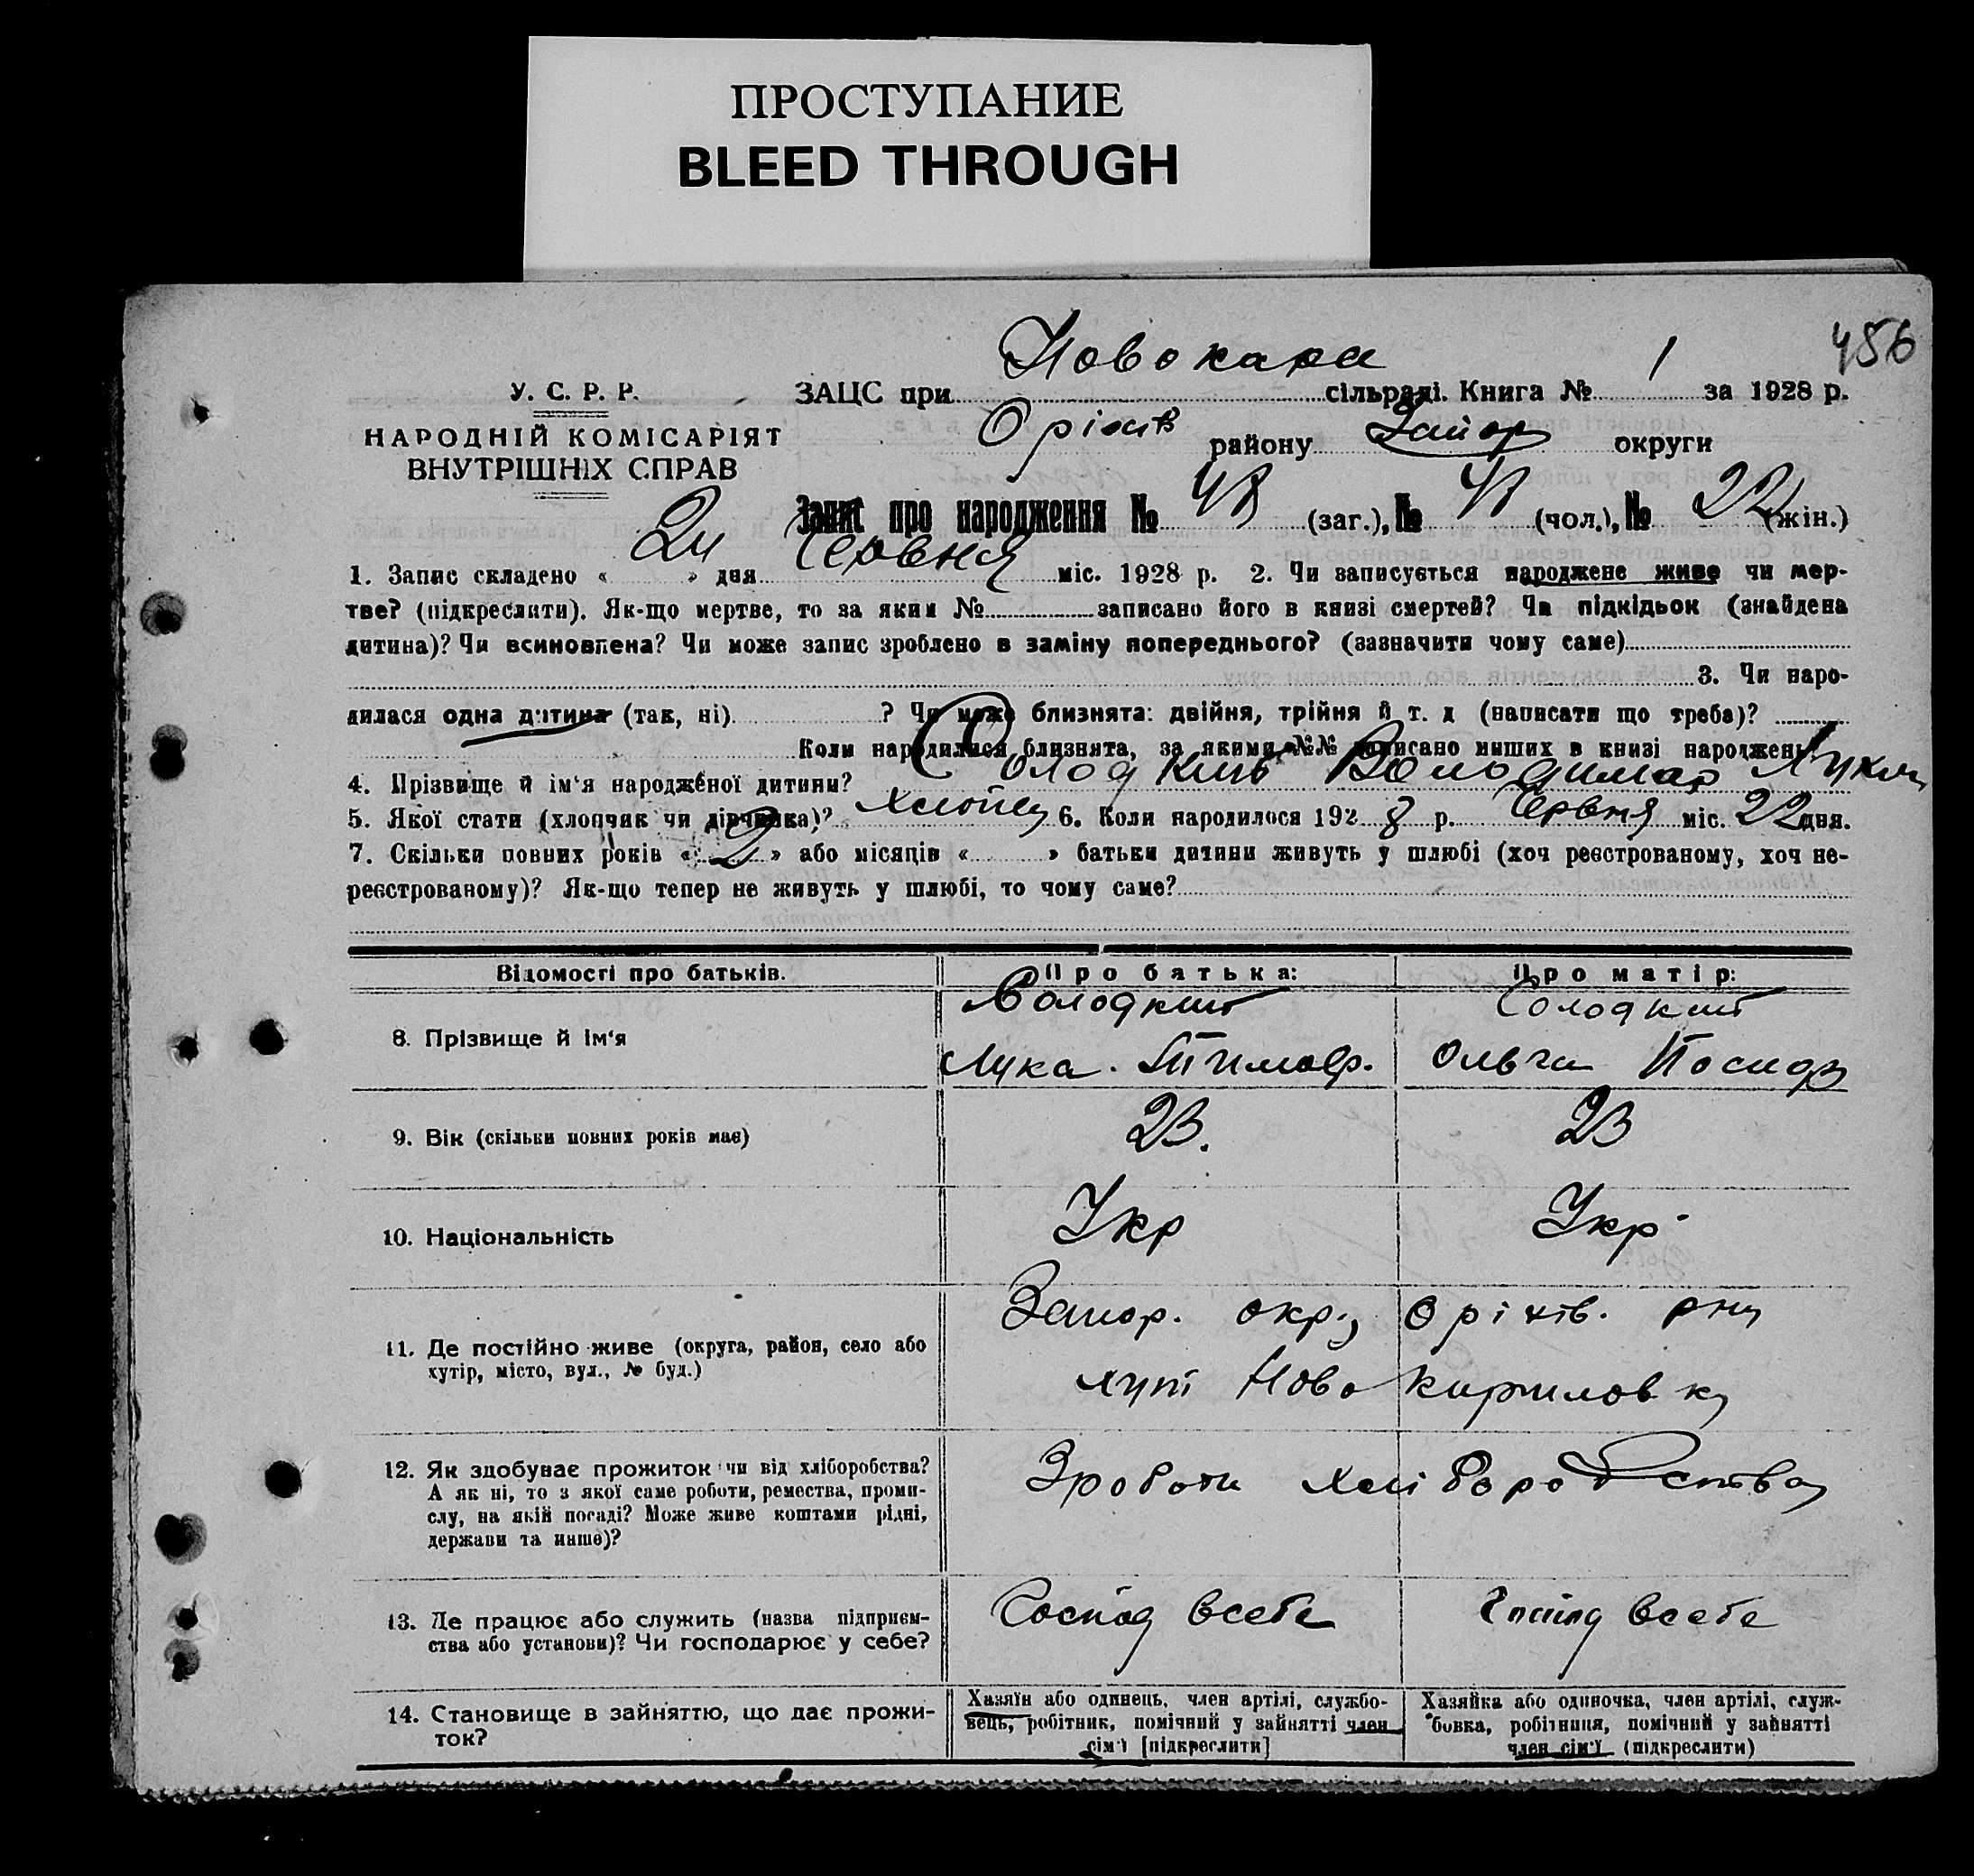 ПРОСТУПАНИЕ
BLEED THROUGH
456
У. С. Р. Р.
НАРОДНІЙ КОМІСАРІЯТ
ВНУТРІШНІХ СПРАВ
ЗАЦС при Новокара сільраді. Книга № 1 за 1928 р.
Оріхів району Запор округи
Запис про народження № 48 (заг.), № (чол.), № 22 (жін.)
1. Запис складено « 24 » дня Червня міс. 1928 р. 2. Чи записується народжене живе чи мер-
тве? (підкреслити). Як-що мертве, то за яким № записано його в книзі смертей? Чи підкідьок (знайдена
дитина)? Чи всиновлена? Чи може запис зроблено в заміну попереднього? (зазначити чому саме)
3. Чи наро-
дилася одна дитина (так, ні) ? Чи може близнята: двійня, трійня й т. д (написати що треба)?
Коли народилися близнята, за якими №№ записано инших в книзі народжень
4. Прізвище й ім'я народженої дитини? Солодкий Володимар Лукич
5. Якої стати (хлопчик чи дівчинка)? Хлопец 6. Коли народилося 1928 р. Червня міс. 22 дня.
7. Скільки повних років « 2 » або місяців « » батьки дитини живуть у шлюбі (хоч реєстрованому, хоч не-
реєстрованому)? Як-що тепер не живуть у шлюбі, то чому саме?
Відомості про батьків. Про батька: Про матір:
8. Прізвище й ім'я
Солодкий
Лука. Тимоф.
Солодкий
Ольга Йосиф
9. Вік (скільки повних років має) 23. 23
10. Національність Укр Укр
11. Де постійно живе (округа, район, село або
хутір, місто, вул., № буд.)
Запор. окр., Оріхів. рну
хут Ново Кириловку
12. Як здобуває прожиток чи від хліборобства?
А як ні, то з якої саме роботи, ремества, проми-
слу, на якій посаді? Може живе коштами рідні,
держави та инше)?
Зроботи хліборобства
13. Де працює або служить (назва підприєм-
ства або установи)? Чи господарює у себе?
Господ всебе Господ всебе
14. Становище в зайняттю, що дає прожи-
ток?
Хазяїн або одинець, член артілі, службо-
вець, робітник, помічний у зайнятті член
сім'ї [підкреслити]
Хазяйка або одиночка, член артілі, служ-
бовка, робітниця, помічний у зайнятті
член сім'ї (підкреслити)